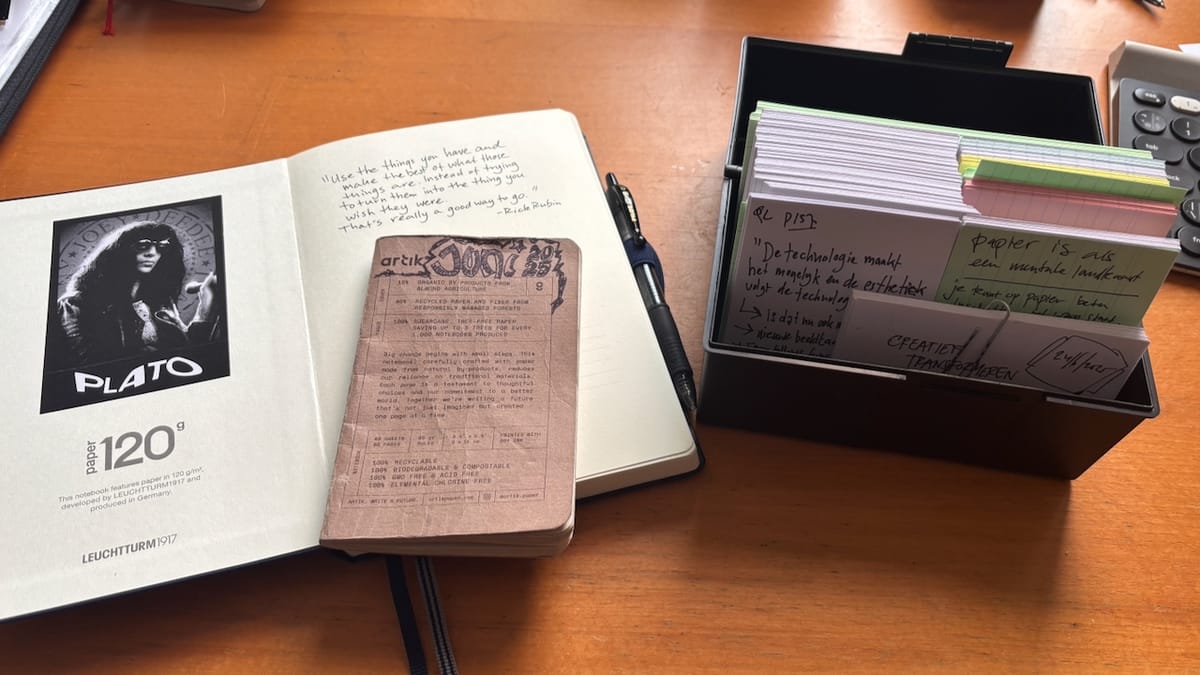 JOEY
PLATO
paper 120g
This notebook features paper in 120 g/m²,
developed by LEUCHTTURM1917 and
produced in Germany.
LEUCHTTURM1917
"Use the things you have and
make the best of what those
things are. Instead of trying
to turn them into the thing you
wish they were.
That's really a good way to go."
- Rick Rubin
artik JUNI 2025
10% ORGANIC BY PRODUCTS FROM
ALMOND AGRICULTURE
RECYCLED PAPER AND FIBER FROM
RESPONSIBLY-MANAGED FORESTS
100% SUGARCANE, TREE-FREE PAPER
SAVING UP TO 5 TREES FOR EVERY
1,000 NOTEBOOKS PRODUCED
Big change begins with small steps. This
notebook carefully crafted with paper
made from natural by-products, reduces
our reliance on traditional materials.
Each page is a testament to thoughtful
choices and our commitment to a better
world. Together we're writing a future
that's not just imagined but created
one page at a time.
PRINTED WITH
100% RECYCLABLE
100% BIODEGRADABLE & COMPOSTABLE
100% GMO FREE & ACID FREE
100% ELEMENTAL CHLORINE FREE
ARTIK. WRITE A FUTURE.
"De technologie maakt
het mogelijk en de esthetiek
volgt de technolog
→ Is dat nu ook
→ nieuwe
papier is als
een mentale landkaart
je
op papier beter
CREATIEF
TRANSFORMEREN
esc
tab